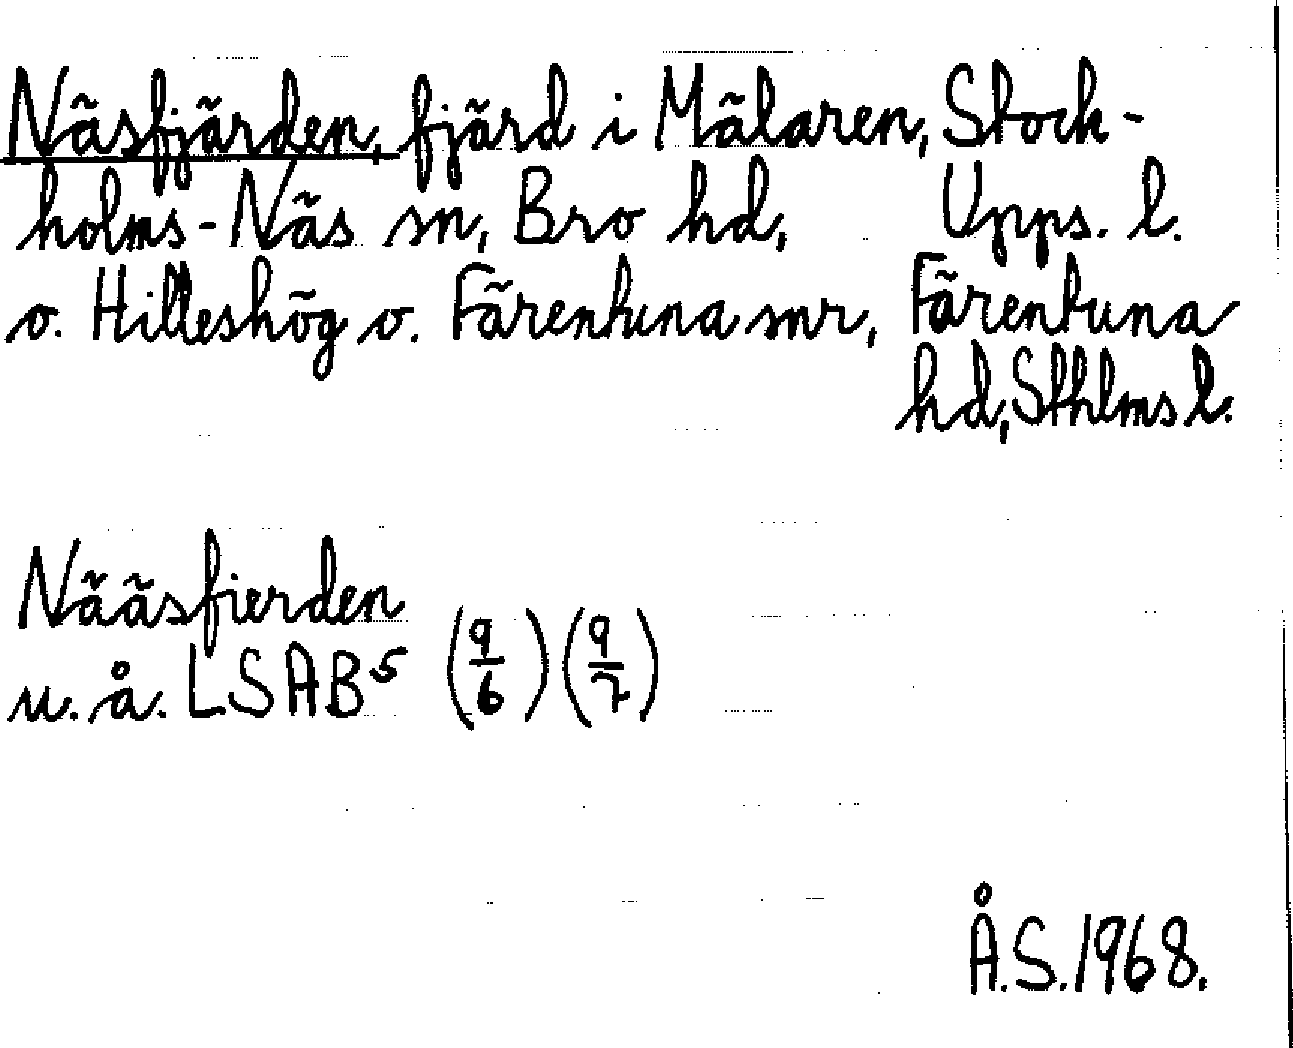 Näsfjärden, fjärd i Mälaren, Stock-
holms-Näs sn, Bro hd, Upps. l.
o. Hilleshög o. Färentuna snr, Färentuna
hd, Sthlms l.
Nääsfierden
u. å. LSAB⁵ (9/6) (9/7)
Å.S. 1968.